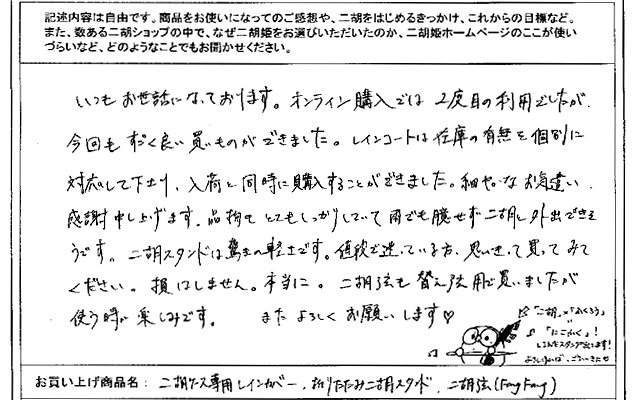 記述内容は自由です。商品をお使いになってのご感想や、二胡をはじめるきっかけ、これからの目標など。
また、数ある二胡ショップの中で、なぜ二胡姫をお選びいただいたのか、二胡姫ホームページのここが使い
づらいなど、どのようなことでもお聞かせください。
いつもお世話になっております。オンライン購入では2度目の利用でしたが、
今回もすごく良い買いものができました。レインコートは在庫の有無を個別に
対応して下さり、入荷と同時に購入することができました。細やかなお気遣い、
感謝申し上げます。品物もとてもしっかりしていて雨でも臆せず二胡と外出できそ
うです。二胡スタンドは驚きの軽さです。値段で迷っている方、思いきって買ってみて
ください。損はしません。本当に。二胡弦も替え弦用で買いましたが
使う時が楽しみです。またよろしくお願いします♡
「二胡」×「ふくろう」
「にこふく」!
お買い上げ商品名: 二胡ケース専用レインカバー、折りたたみ二胡スタンド、二胡弦(FangFang)